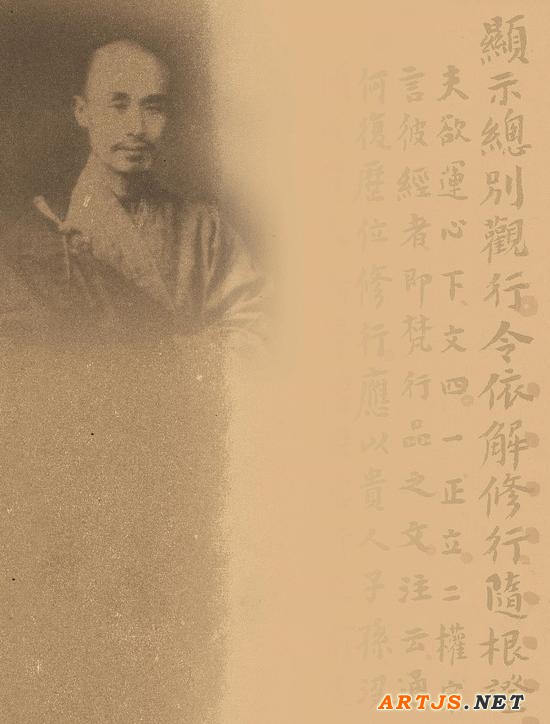 顯示總別觀行令依解修行隨根證
夫欲運心下文四一正立二權實
言彼經者即梵行品之文注云通
何復歷位修行應以貴人子孫
ARTJS.NET